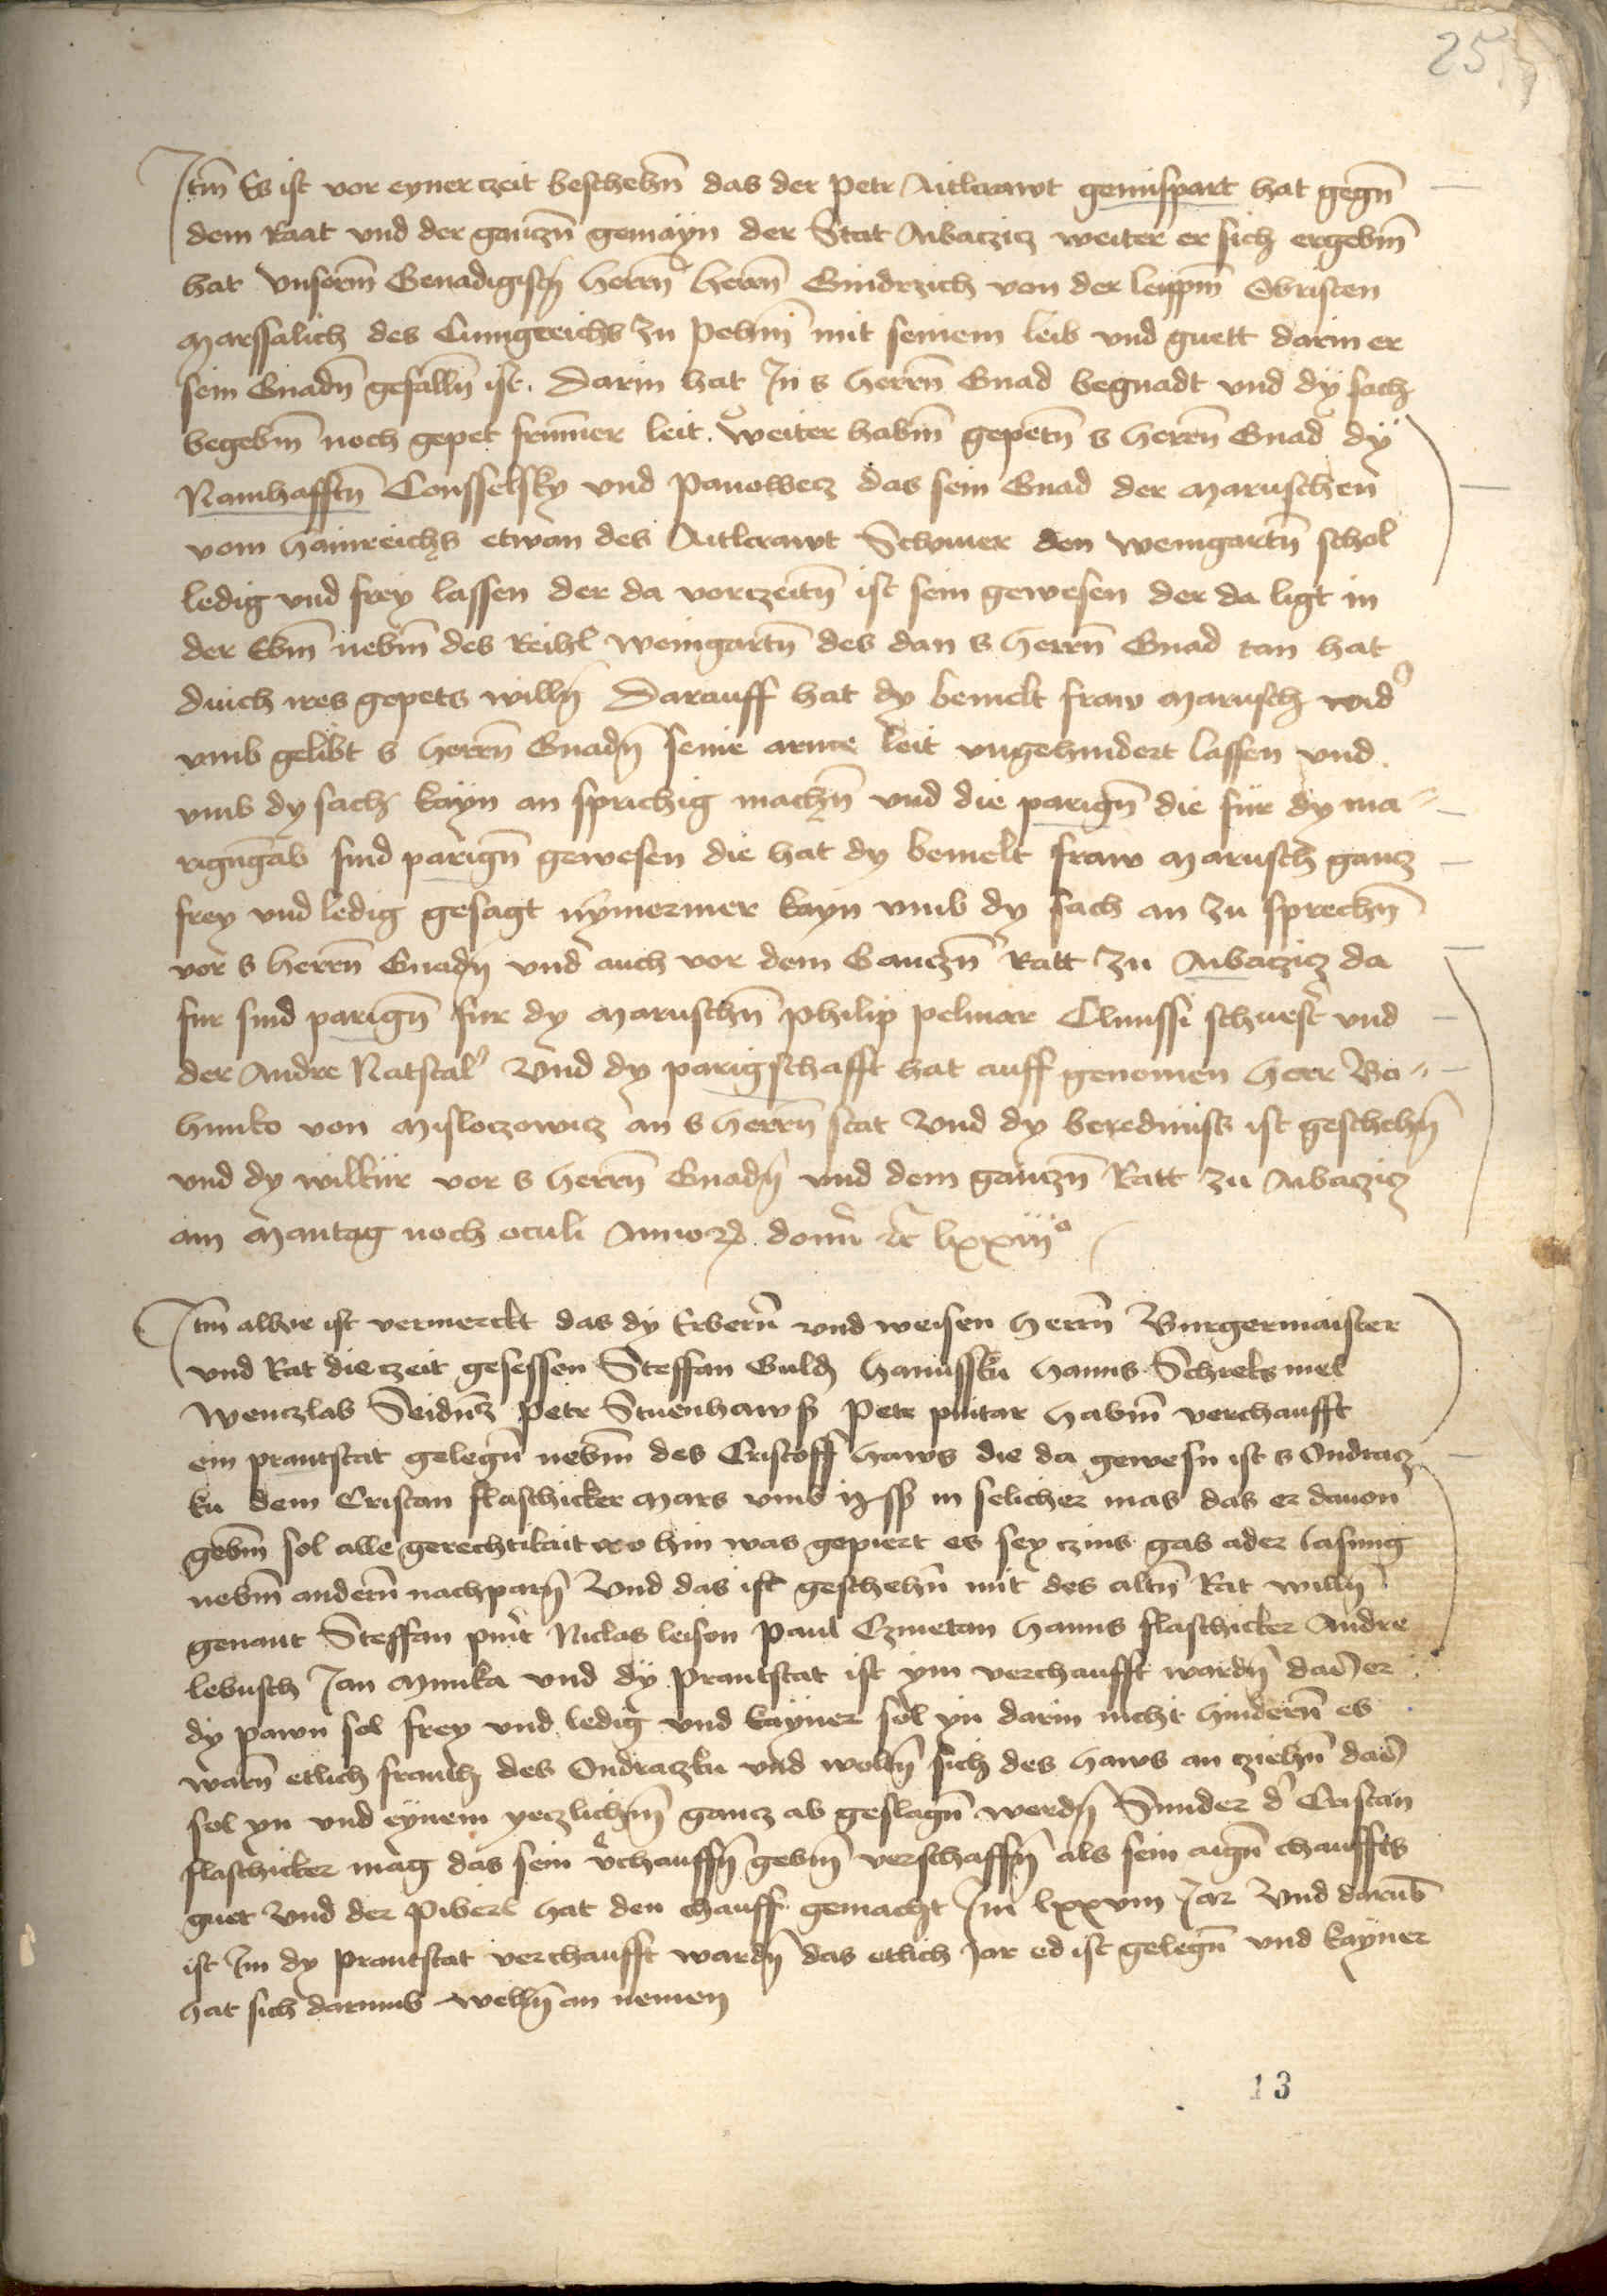 25
Itm̄ Es ist vor eyner czeit beschehn̄ das der Petr Aitlcrawt gemispart hat gegn̄
dem Raat vnd der ganczn̄ gemäyn der Stat Aibaczicz weiter er sich ergebm̄
hat vnserm̄ Genadigistn̄ herrn̄ herrn̄ Gindrzich von der leippm̄ Obristen
Marssalich des Cunigreichs zu Pehm̄ mit seinem leib vnd guett darin er
sein Gnadn̄ gefalln̄ ist. Darin hat In s herrn̄ Gnad begnadt vnd dÿ sach
begebm̄ noch gepet frumer leit. weiter habm̄ gepetn̄ s herrn̄ Gnad dÿ
Namhafftn̄ Consselsky vnd Panowecz das sein Gnad der Maruschen
vom Hainreichs etwan des Aitlcrawt Schwer den weingartn̄ schol
ledig vnd freÿ lassen der da vorczeitn̄ ist sein gewesen der da ligt in
der Ebm̄ nebm̄ des Reihl weingartn̄ des dan s herrn̄ Gnad tan hat
durch ires gepets willn̄ Darauff hat dy bemelt fraw Marusch wid
vmb gelibt s herrn̄ Gnadn̄ seine arme leit vngehindert lassen vnd
vmb dy sach kayn an sprichig machn̄ vnd die parign̄ die für dy ma
rigngab sind parign̄ gewesen die hat dy bemelt fraw Marusch gancz
freÿ vnd ledig gesagt nÿmermer kayn vmb dy sach an zu sprechn̄
vor s herrn̄ Gnadn̄ vnd auch vor dem Ganczn̄ Ratt zu Aibaczicz da
fur sind parign̄ fur dy Maruschn̄ Philip pelmar Clmussi schuest vnd
der Andre Natstal Vnd dy parigschafft hat auff genomen Herr Bo
hunko von Misloczowicz an s herrn̄ stat Vnd dy berednuss ist geschehn̄
vnd dy wilkür vor s herrn̄ Gnadn̄ vnd dem ganczn̄ Ratt zu Aibaczicz
am Mantag noch oculi Anno domī lxxiii°
Itm̄ alhie ist vermerckt das dÿ Erbern̄ vnd weisen Herrn̄ Burgermaister
vnd Rat die czeit gesessen Steffan Guld Hanussku Hanns Schreksmel
Wenczlab Seidncz Petr Stuenhawss Petr pintar habm̄ verchaufft
ein prantstat gelegn̄ nebm̄ des Cristoff Haws die da gewesn ist s Ondracz
ku dem Cristan flaschicker Mars vmb ss in selicher mas das er dauon
gebm̄ sol alle gerechtikait wo hin was gepiert es sey czins gab ader lasung
nebm̄ andern̄ nachparn̄ Vnd das ist geschehn̄ mit des altn̄ Rat willn̄
genant Steffan pint Niclas leison Paul Czmetan Hanns flaschicker Andre
lebusch Jan Munka vnd dÿ Prantstat ist ÿm verchaufft wardn̄ das er
dy pawn sol freÿ vnd ledig vnd kayner sol yn darin nicht hindern̄ es
warn̄ etlich frantz des Ondraczku vnd woltn̄ sich des Haws an cziehn̄ das
sol yn vnd eÿnem yeczlichm̄ gancz ab geslagn̄ werdn̄ Sunder d Cristan
flaschicker mag das sein vchauffn̄ gebm̄ verschaffn̄ als sein aign̄ chauffts
guet Vnd der Piberl hat den chauff gemacht Im lxxviii Jar Vnd darub
ist Im dy Prantstat verchaufft wardn̄ das etlich Jar ed ist gelegn̄ vnd kayner
hat sich darumb welln̄ an nemen
13